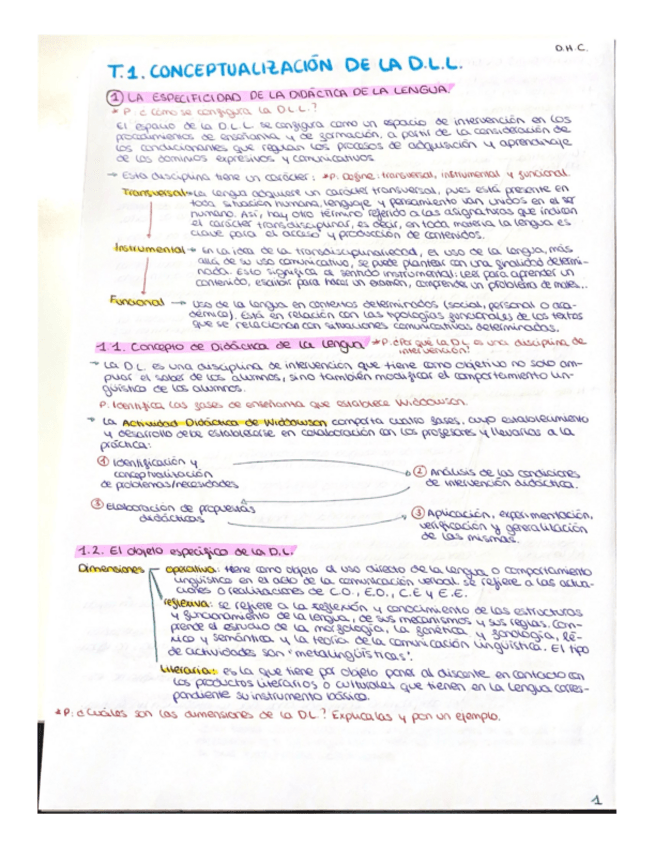 D.H.C.
T.1. CONCEPTUALIZACIÓN DE LA D.L.L.
1 LA ESPECIFICIDAD DE LA DIDÁCTICA DE LA LENGUA.
* P: ¿Cómo se configura la D.L.L.?
El espacio de la D.L.L. se configura como un espacio de intervención en los
procedimientos de enseñanza y de formación, a partir de la consideración de
los condicionantes que regulan los procesos de adquisición y aprendizaje
de los dominios expresivos y comunicativos
→ Esta disciplina tiene un carácter: *P: Define: transversal, instrumental y funcional.
Transversal → La lengua adquiere un carácter transversal, pues está presente en
toda situación humana, lenguaje y pensamiento van unidos en el ser
humano. Así, hay otro término referido a las asignaturas que indican
el carácter transdisciplinar, es decir, en toda materia la lengua es
clave para el acceso y producción de contenidos.
Instrumental → En la idea de la transdisciplinariedad, el uso de la lengua, más
allá de su uso comunicativo, se puede plantear con una finalidad determi-
nada. Esto significa el sentido instrumental: leer para aprender un
contenido, escribir para hacer un examen, comprende un problema de mates...
Funcional → Uso de la lengua en contextos determinados (social, personal o aca-
démico). Está en relación con las tipologías funcionales de los textos
que se relacionan con situaciones comunicativas determinadas.
1.1. Concepto de Didáctica de la Lengua *P: ¿Por qué la D.L es una disciplina de
intervención?
→ La D.L. es una disciplina de intervención que tiene como objetivo no solo am-
pliar el saber de los alumnos, sino también modificar el comportamiento lin-
güístico de los alumnos.
P: Identifica las fases de enseñanza que establece Widdowson.
→ La Actividad Didáctica de Widdowson comporta cuatro fases, cuyo establecimiento
y desarrollo debe establecerse en colaboración con los profesores y llevarlos a la
práctica:
1 Identificación y
conceptualización
de problemas/necesidades
2 Análisis de las condiciones
de intervención didáctica.
3 Elaboración de propuestas
didácticas
3 Aplicación, experimentación,
verificación y generalización
de las mismas.
1.2. El objeto específico de la D.L.
Dimensiones
operativa: tiene como objeto el uso directo de la lengua o comportamiento
lingüístico en el acto de la comunicación verbal. se refiere a las actua-
ciones o realizaciones de C.O., E.O., C.E y E.E.
reflexiva: se refiere a la reflexión y conocimiento de las estructuras
y funcionamiento de la lengua, de sus mecanismos y sus reglas. Com-
prende el estudio de la morfología, la fonética y fonología, lé-
xico y semántica y la teoría de la comunicación lingüística. El tipo
de actividades son "metalingüísticas".
Literaria: es la que tiene por objeto poner al discente en contacto con
los productos literarios o culturales que tienen en la lengua corres-
pondiente su instrumento básico.
*P: ¿Cuáles son las dimensiones de la DL? Explícalas y pon un ejemplo.
1